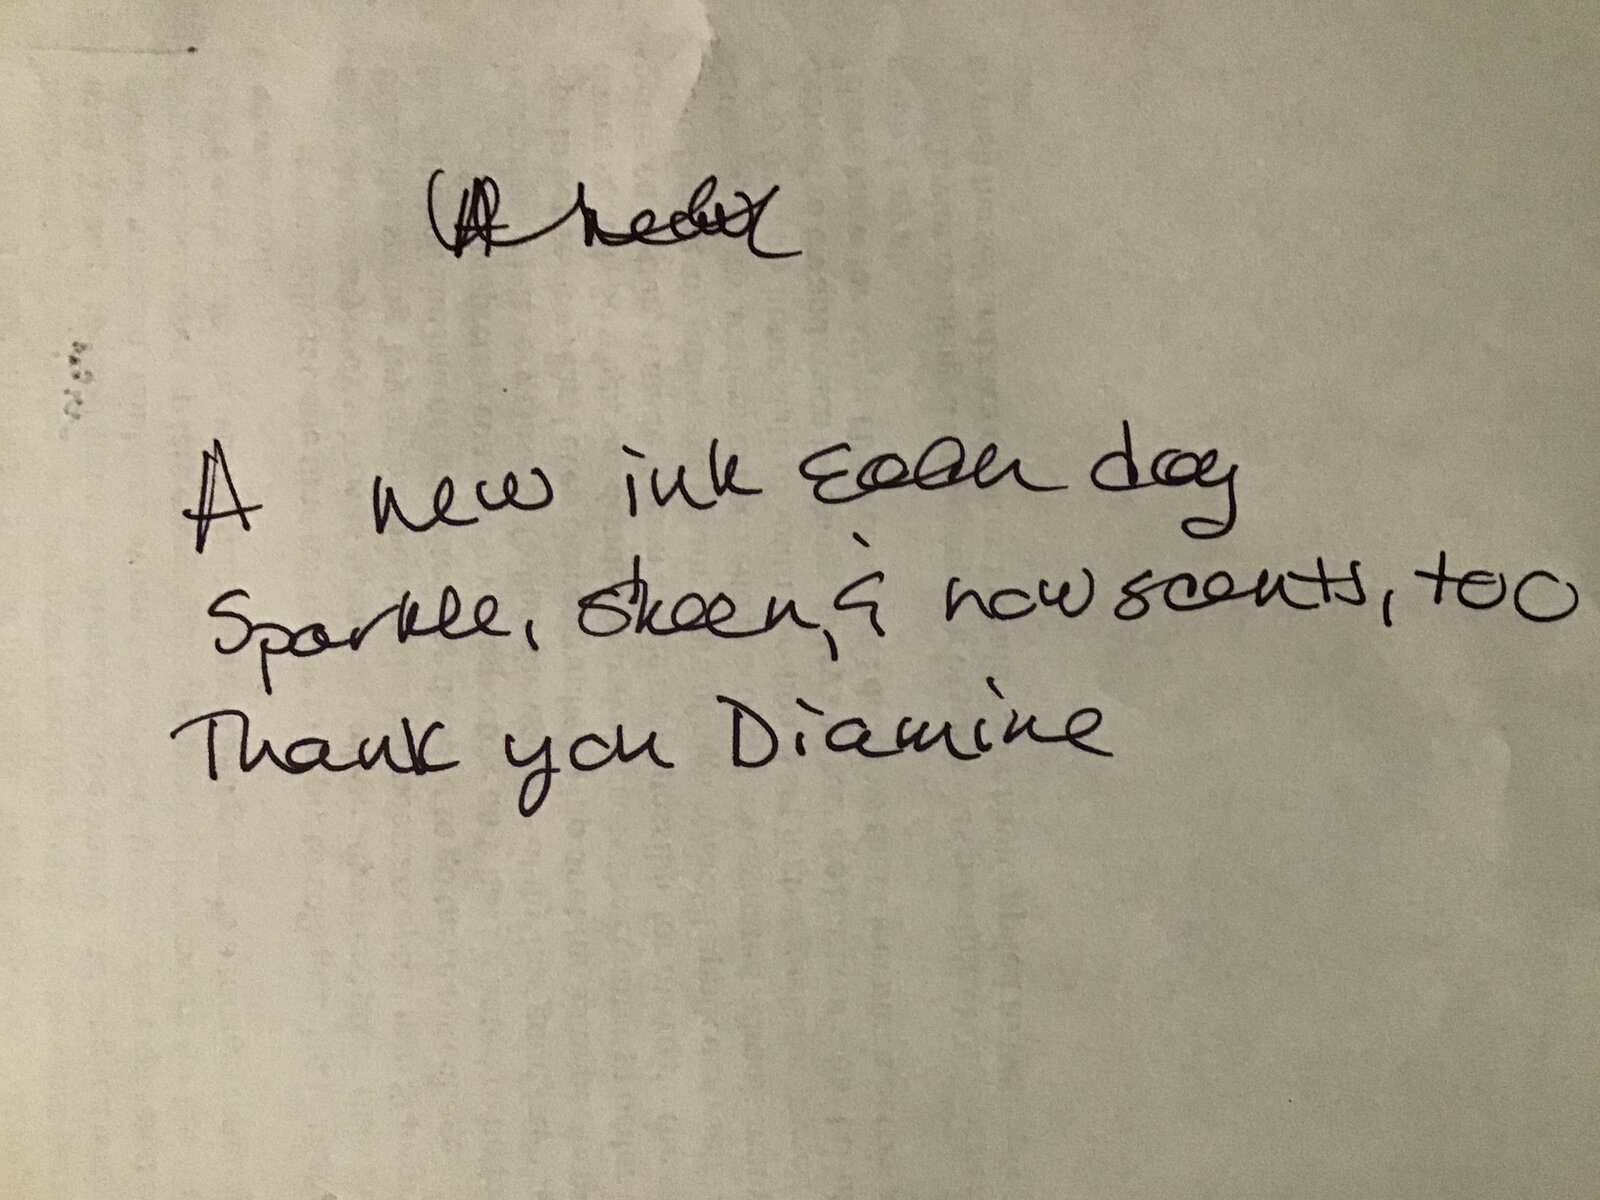 A new ink each day
Sparkle, sheen, & now scents, too
Thank you Diamine